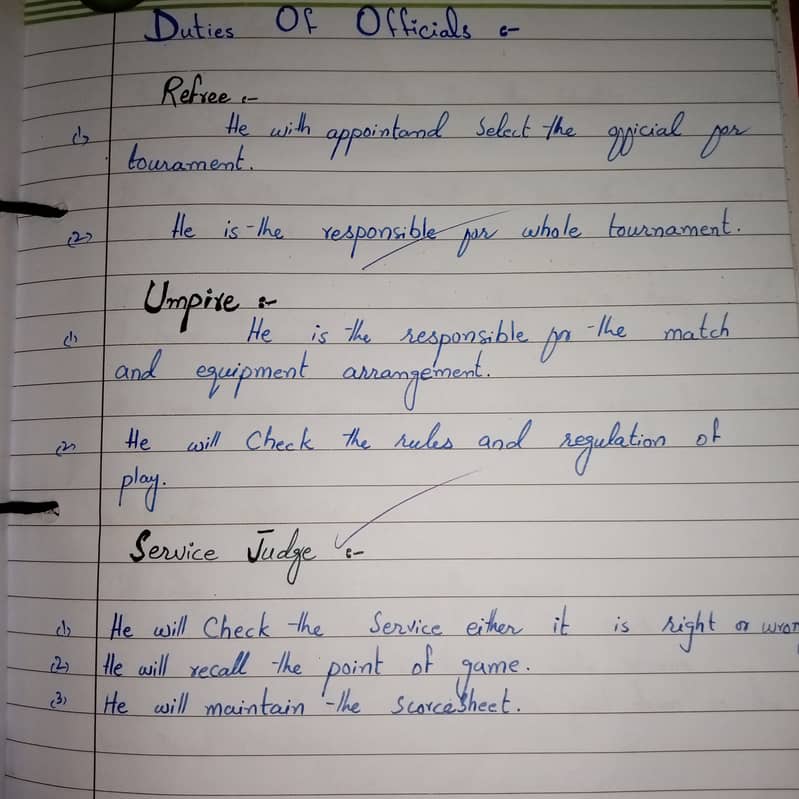 Duties Of Officials :-
Refree :-
(1) He with appointand Select the official for
tourament.
(2) He is the responsible for whole tournament.
Umpire :-
(1) He is the responsible for the match
and equipment arrangement.
(2) He will Check the rules and regulation of
play.
Service Judge :-
(1) He will Check the Service either it is right or wron
(2) He will recall the point of game.
(3) He will maintain the ScorceSheet.